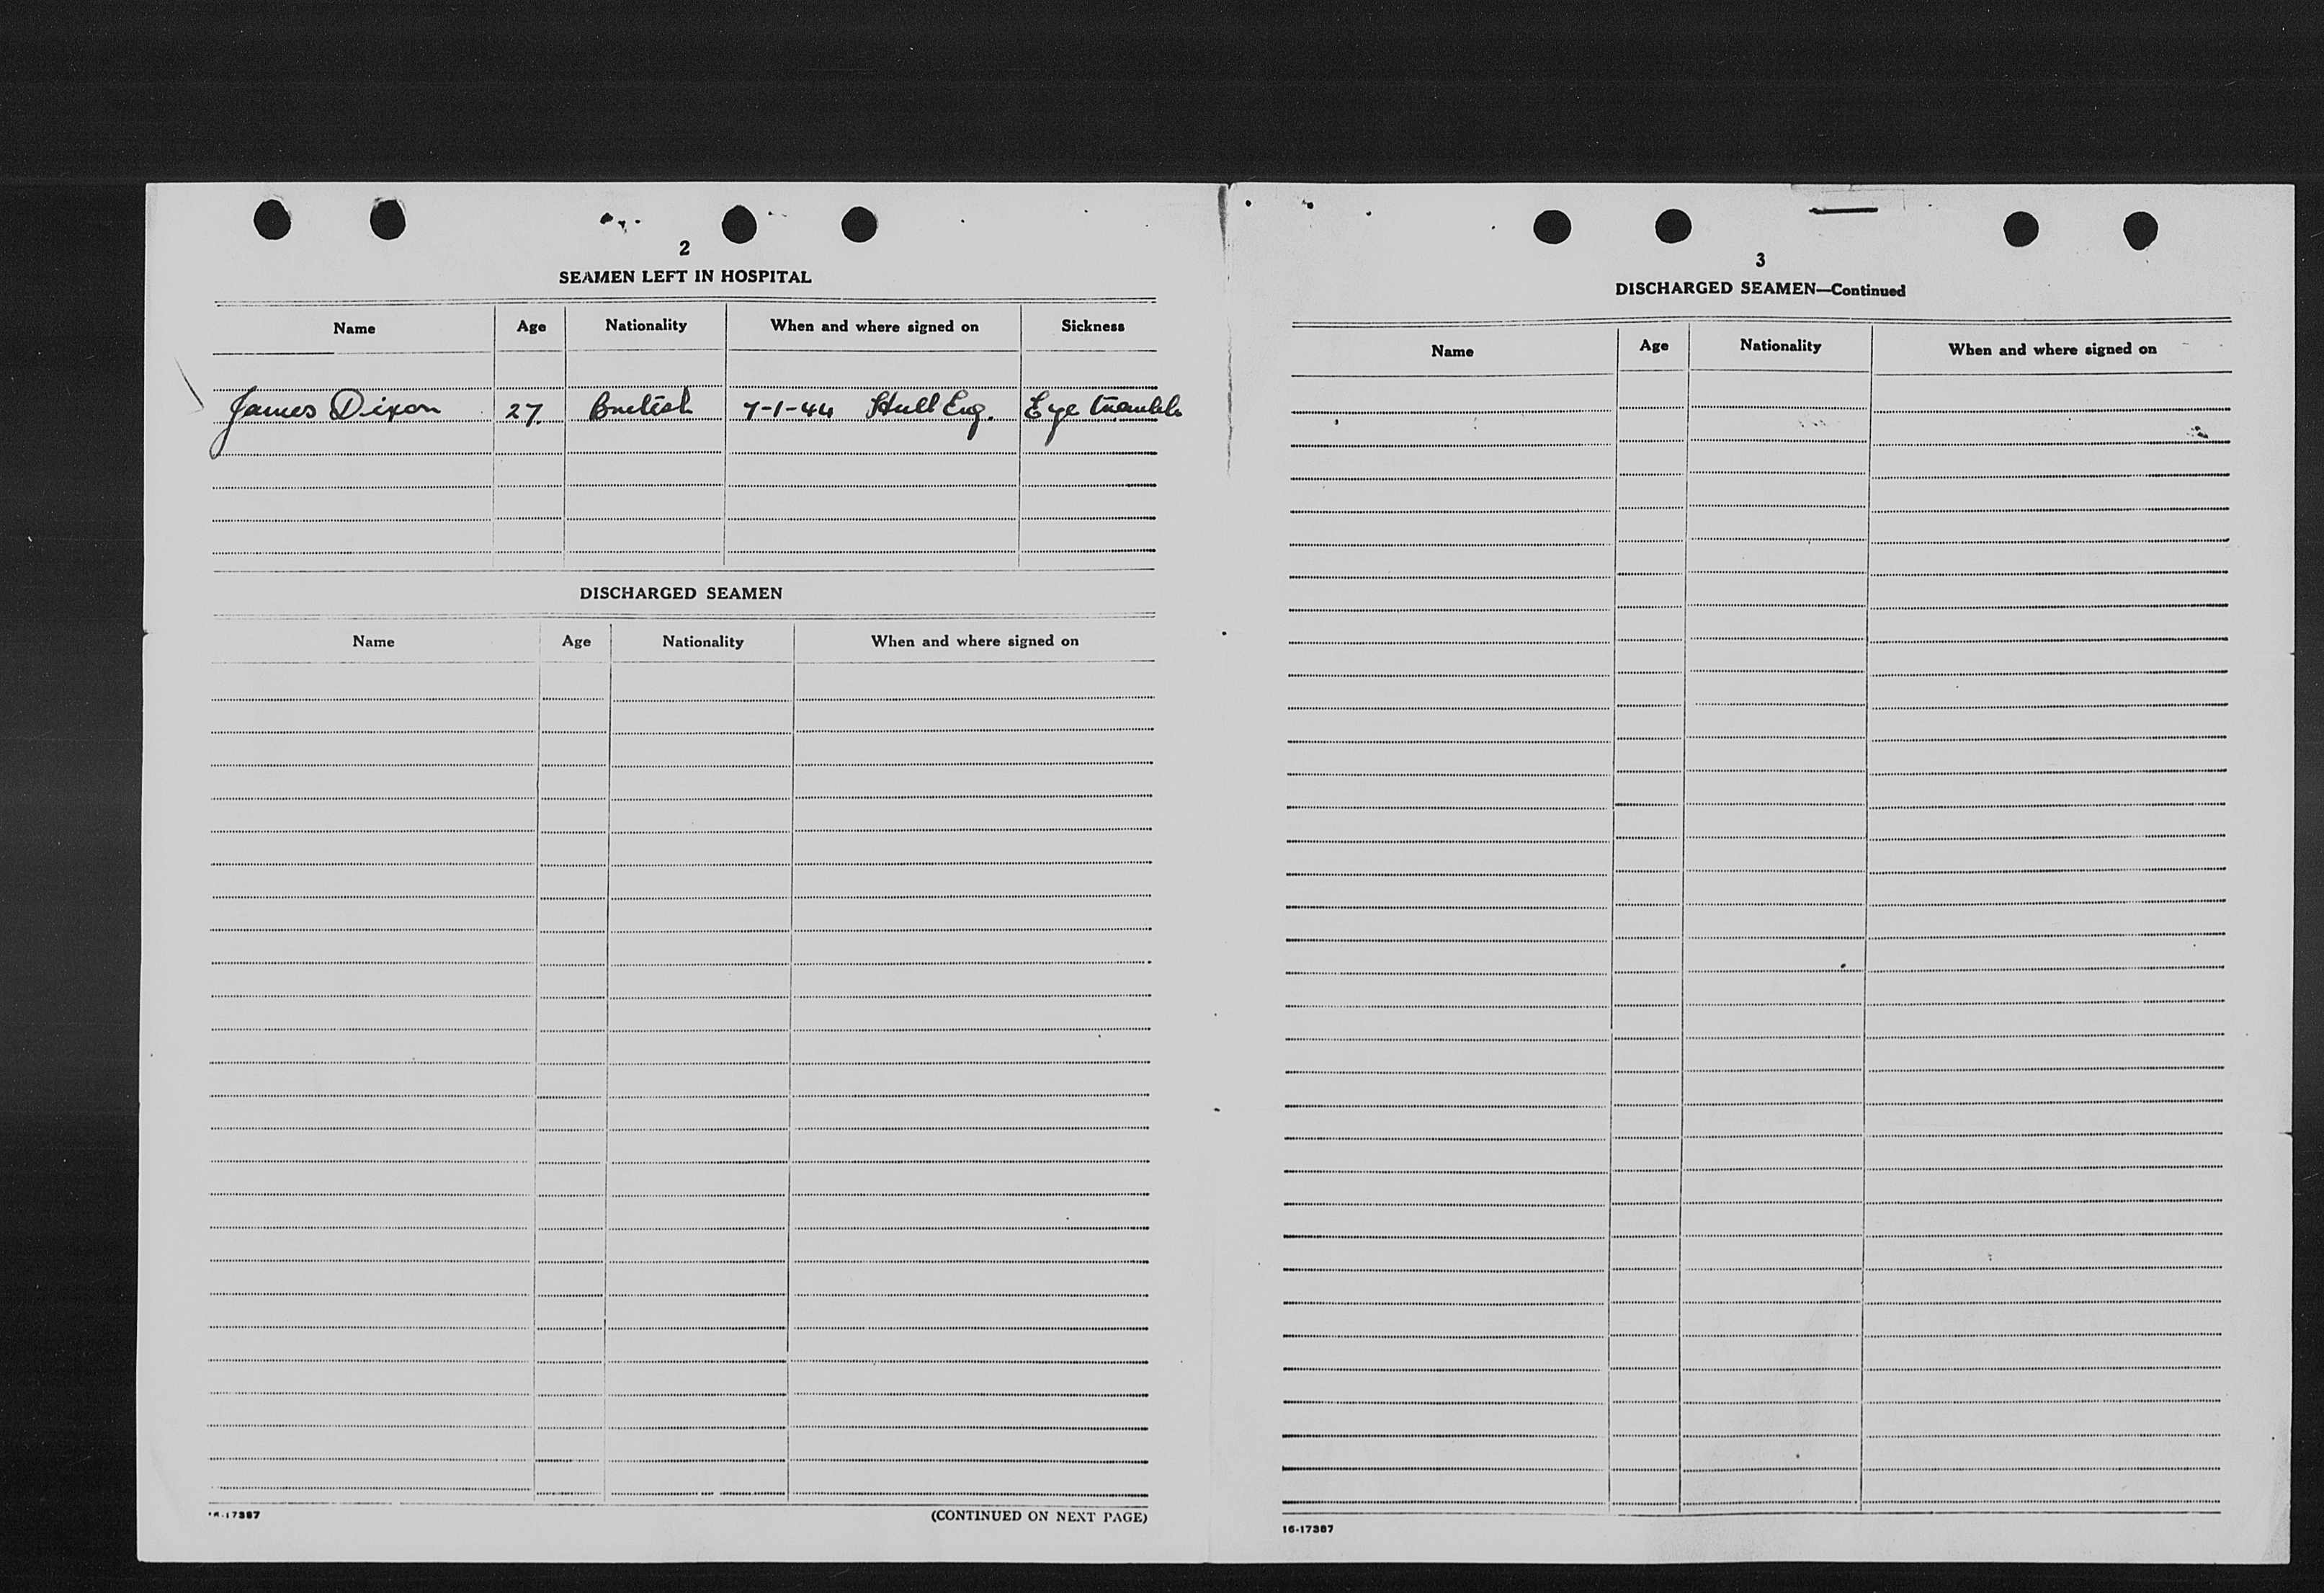 2
SEAMEN LEFT IN HOSPITAL
Name Age Nationality When and where signed on Sickness
James Dixon 27 British 7-1-44 Hull Eng. Eye trouble
DISCHARGED SEAMEN
Name Age Nationality When and where signed on
16-17387 (CONTINUED ON NEXT PAGE)
3
DISCHARGED SEAMEN—Continued
Name Age Nationality When and where signed on
16-17387